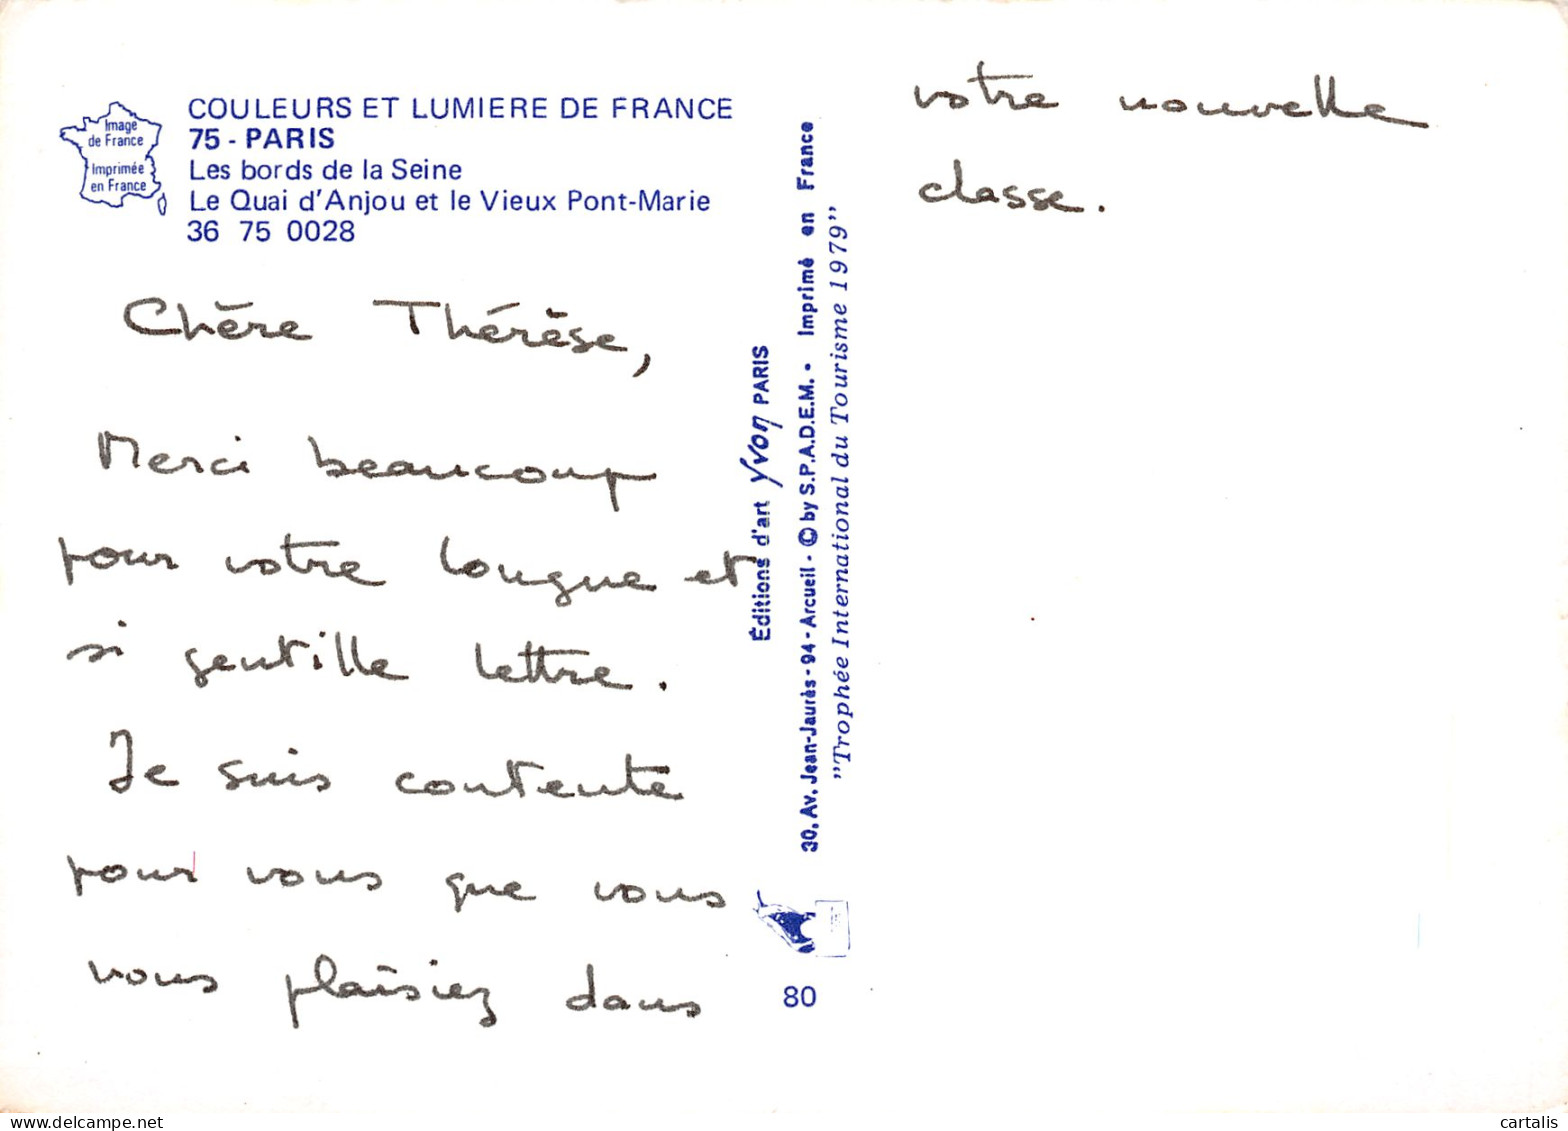 COULEURS ET LUMIERE DE FRANCE
75 - PARIS
Les bords de la Seine
Le Quai d'Anjou et le Vieux Pont-Marie
36 75 0028
Image
de France
Imprimée
en France
Chère Thérèse,
Merci beaucoup
pour votre longue et
si gentille lettre.
Je suis contente
pour vous que vous
vous plaisiez dans
votre nouvelle
classe.
Éditions d'art Yvon PARIS
30, Av. Jean-Jaurès - 94 - Arcueil - © by S.P.A.D.E.M. • Imprimé en France
"Trophée International du Tourisme 1979"
80
cartalis